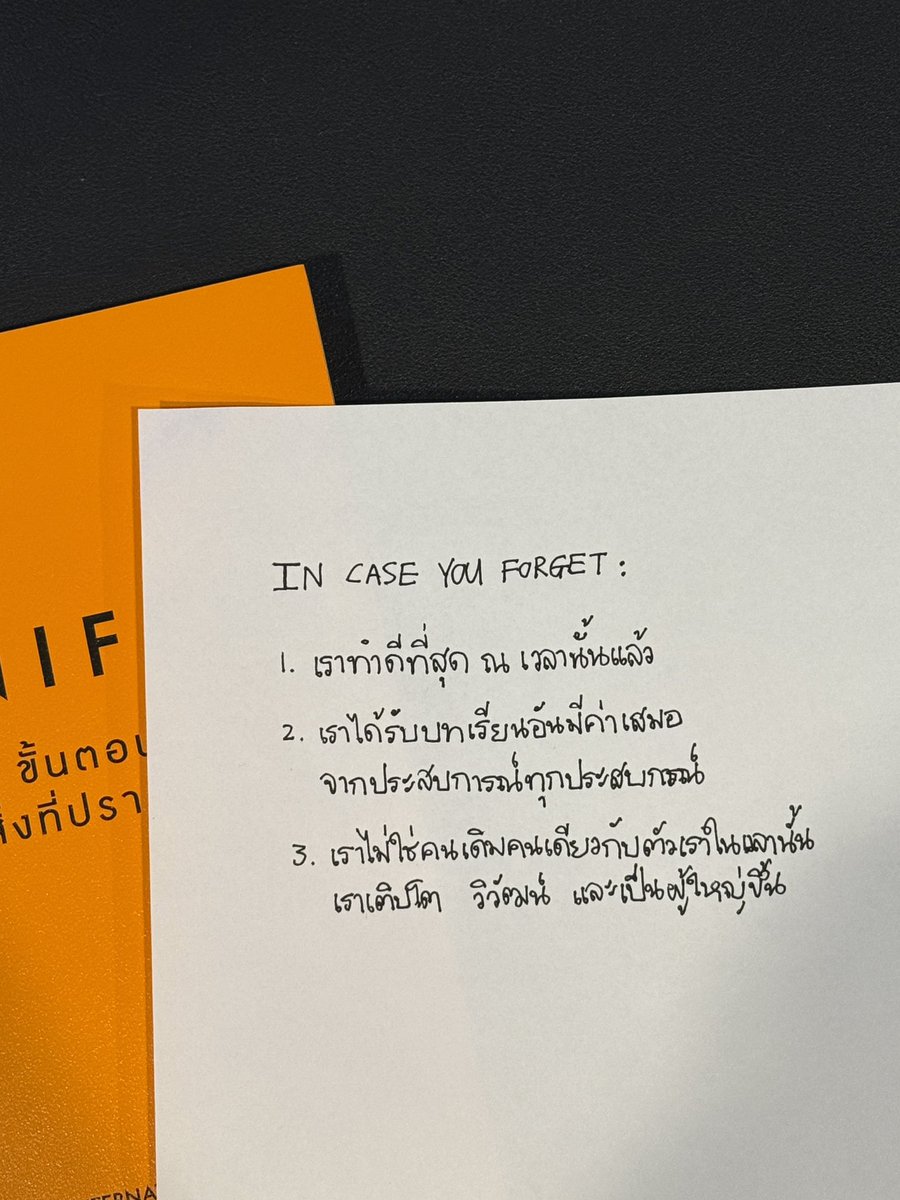 IN CASE YOU FORGET :
1. เราทำดีที่สุด ณ เวลานั้นแล้ว
2. เราได้รับบทเรียนอันมีค่าเสมอ
จากประสบการณ์ทุกประสบการณ์
3. เราไม่ใช่คนเดิมคนเดียวกับตัวเราในเวลานั้น
เราเติบโต วิวัฒน์ และเป็นผู้ใหญ่ขึ้น
NIF
ขั้นตอน
สิ่งที่ปรา
TERNA